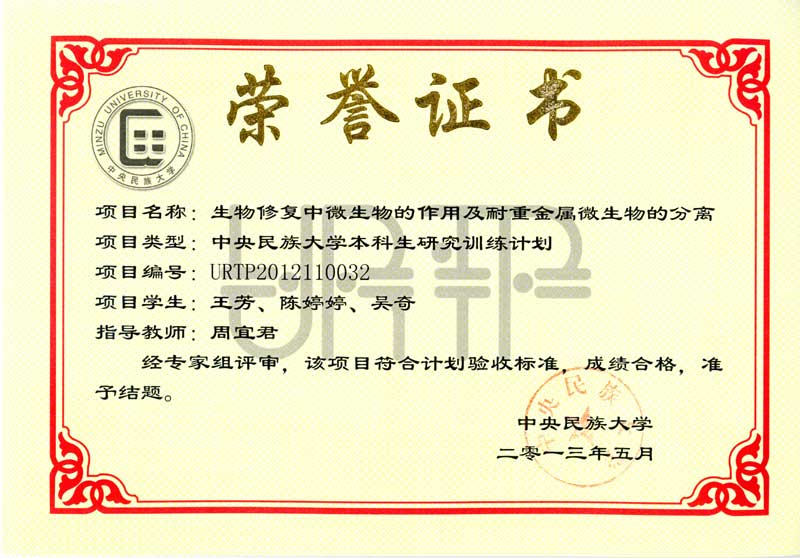 荣誉证书
MINZU UNIVERSITY OF CHINA
中央民族大学
项目名称：生物修复中微生物的作用及耐重金属微生物的分离
项目类型：中央民族大学本科生研究训练计划
项目编号：URTP2012110032
项目学生：王芳、陈婷婷、吴奇
指导教师：周宜君
经专家组评审，该项目符合计划验收标准，成绩合格，准
予结题。
中央民族大学
二零一三年五月
URTP
中央民族